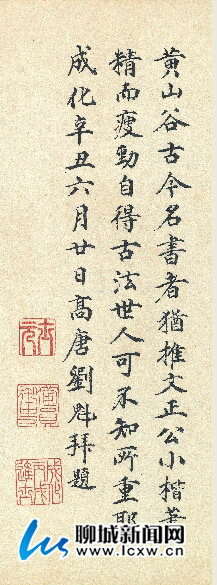 黄山谷古今名書者猶推文正公小楷筆
精而瘦勁自得古法世人可不知所重耶
成化辛丑六月廿日高唐劉魁拜題
聊城新闻网
www.lcxw.cn